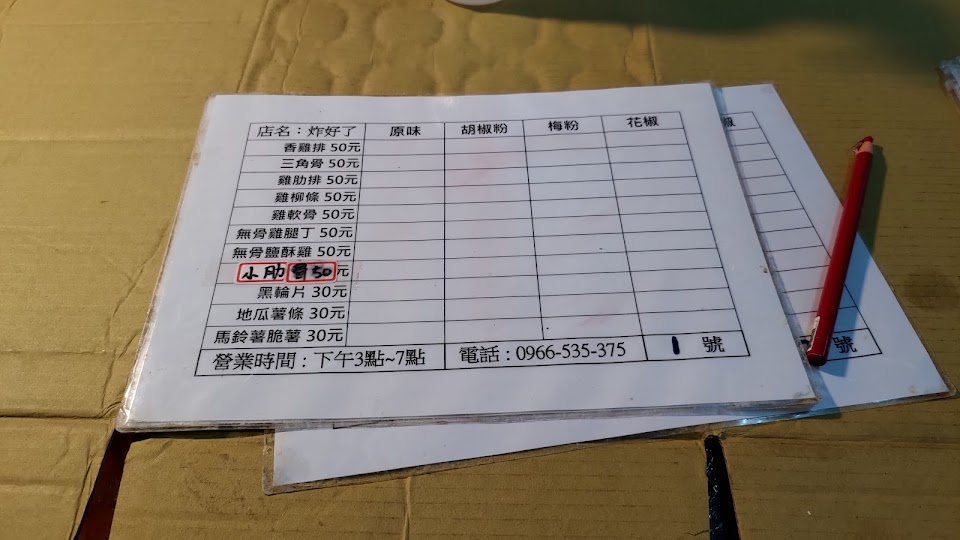 店名：炸好了 原味 胡椒粉 梅粉 花椒
香雞排 50元
三角骨 50元
雞肋排 50元
雞柳條 50元
雞軟骨 50元
無骨雞腿丁 50元
無骨鹽酥雞 50元
小肋 50元
黑輪片 30元
地瓜薯條 30元
馬鈴薯脆薯 30元
營業時間：下午3點~7點 電話：0966-535-375 1 號
椒
號